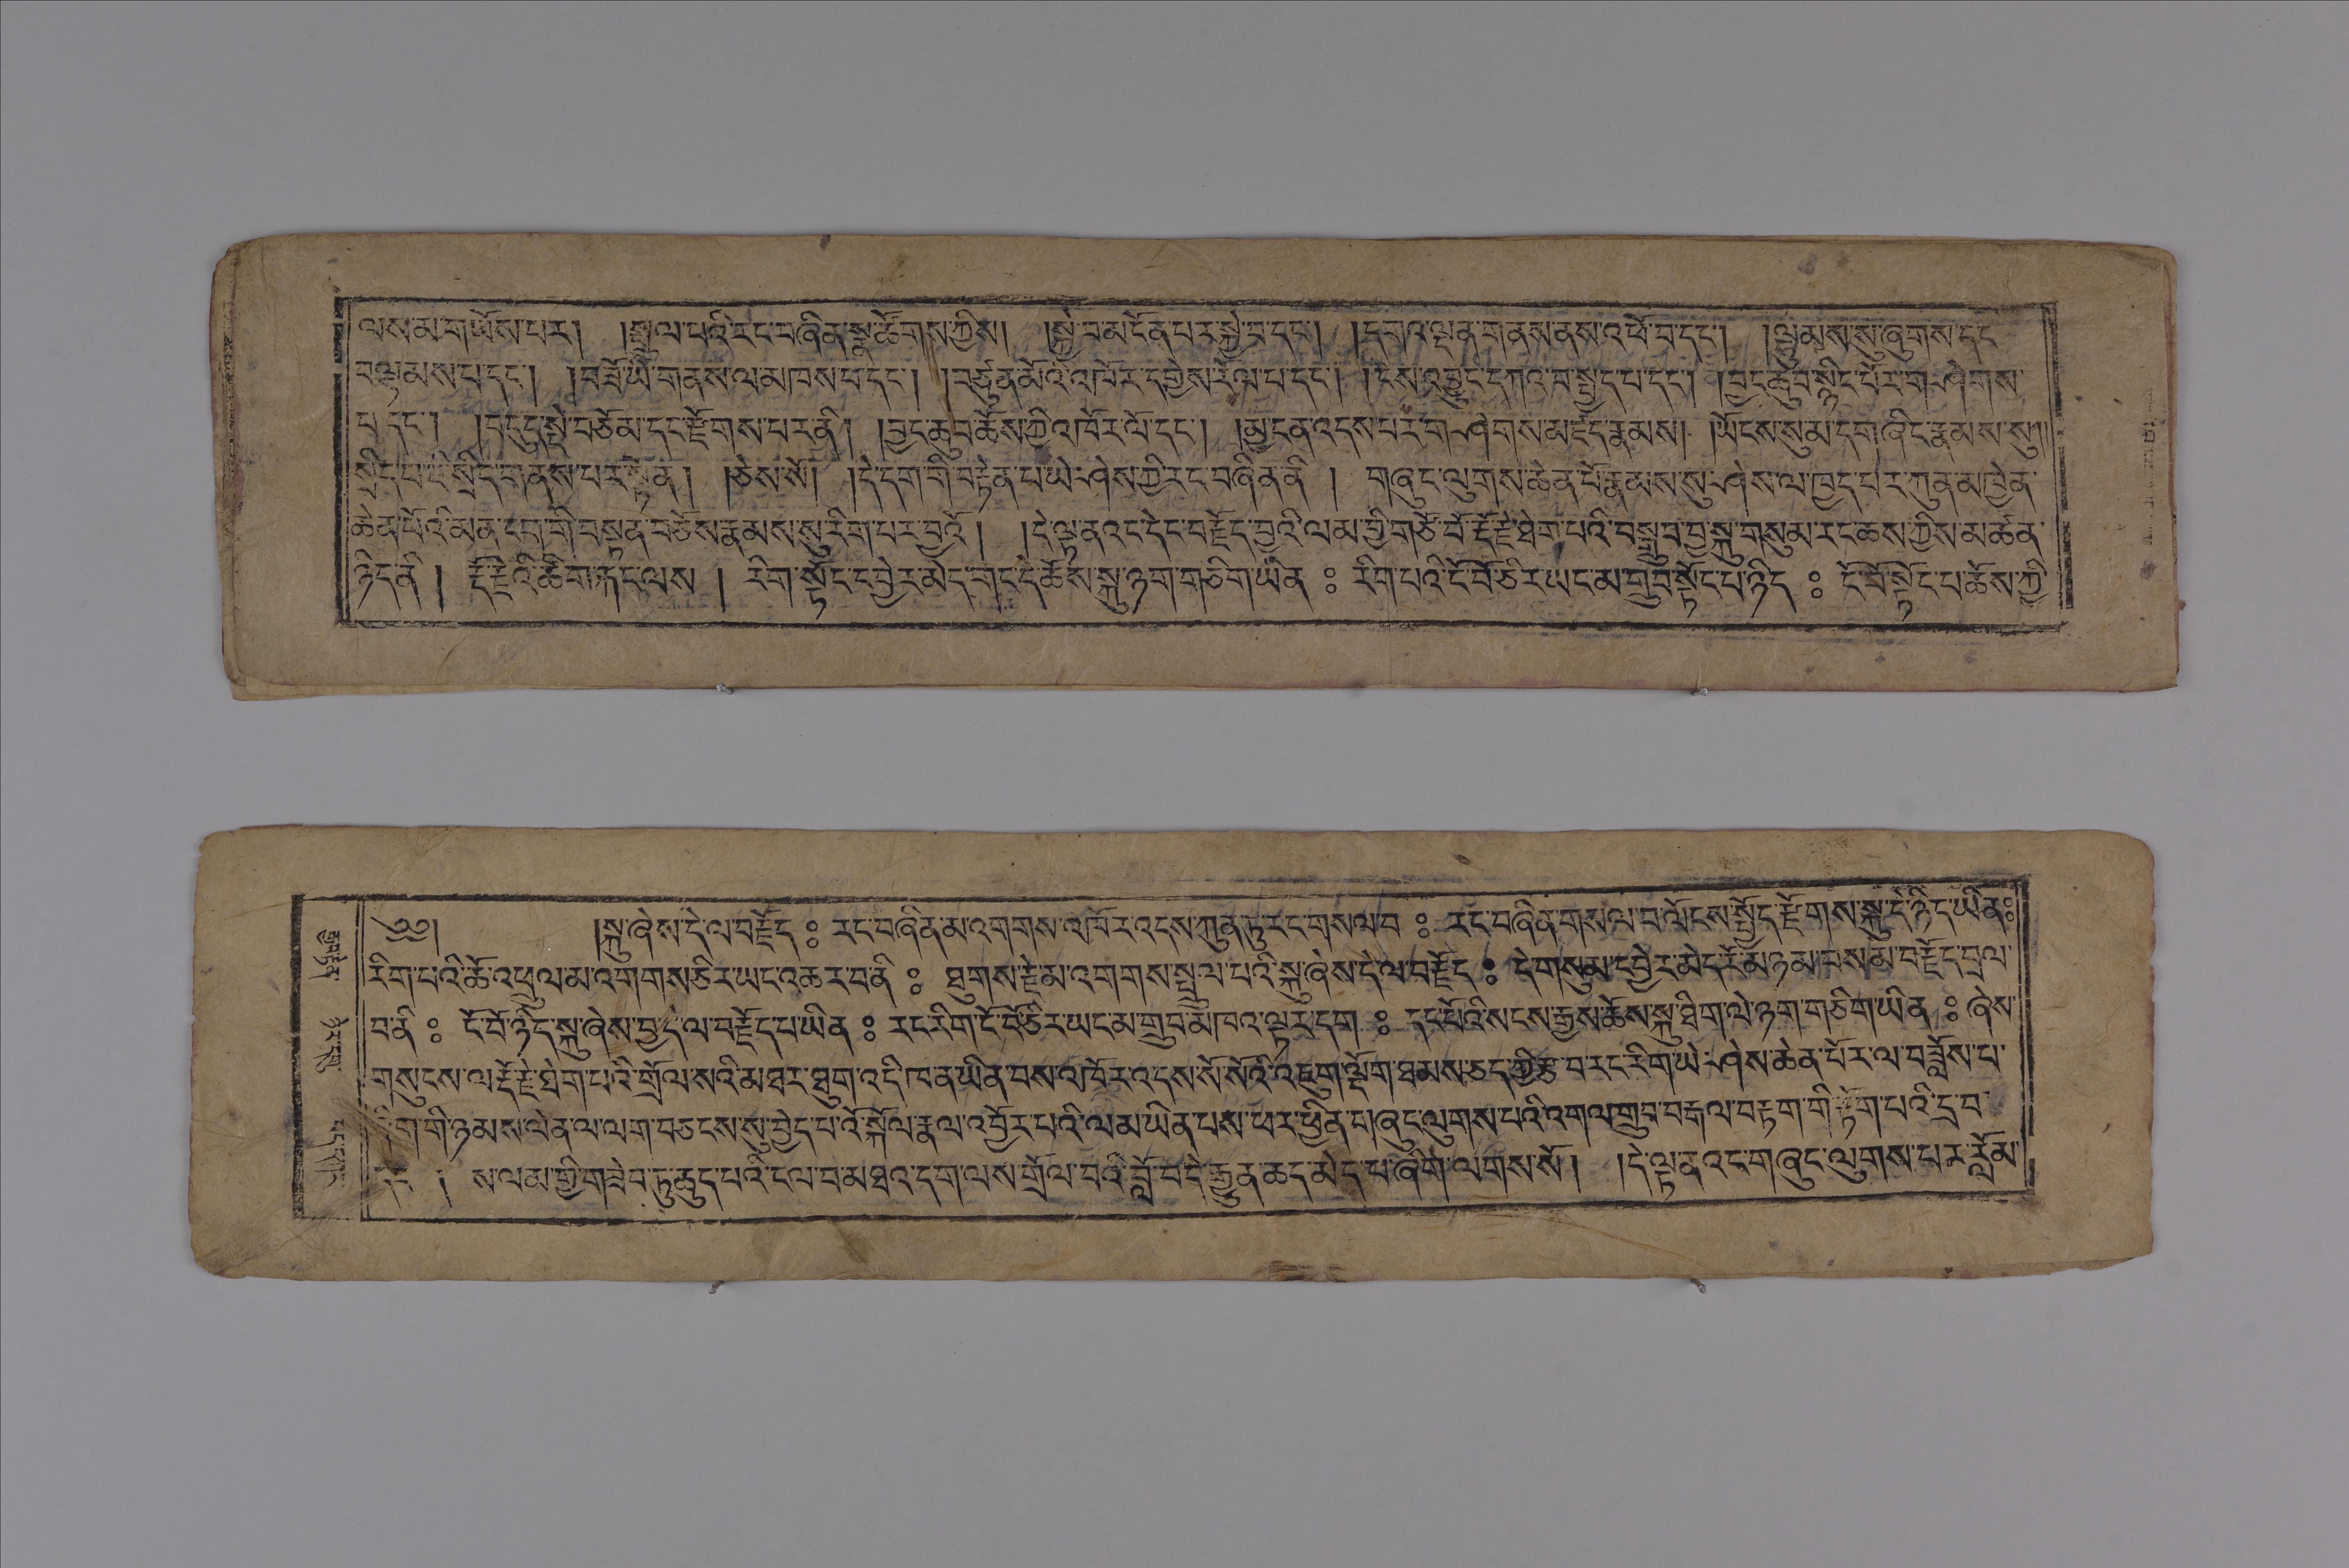 ལས་མ་གཡོས་པར། །སྤྲུལ་པའི་རང་བཞིན་སྣ་ཚོགས་ཀྱིས། །སྐྱེ་བ་མངོན་པར་སྐྱེ་བ་དང་། །དགའ་ལྡན་གནས་ནས་འཕོ་བ་དང་། །ལྷུམས་སུ་ཞུགས་དང་
བལྟམས་པ་དང་། །བཟོ་ཡི་གནས་ལ་མཁས་པ་དང་། །བཙུན་མོའི་འཁོར་དགྱེས་རོལ་པ་དང་། །ངེས་འབྱུང་དཀའ་བ་སྤྱད་པ་དང་། །བྱང་ཆུབ་སྙིང་པོར་གཤེགས་
པ་དང་། །བདུད་སྡེ་བཅོམ་དང་རྫོགས་པར་ནི། །བྱང་ཆུབ་ཆོས་ཀྱི་འཁོར་ལོ་དང་། །མྱ་ངན་འདས་པར་གཤེགས་མཛད་རྣམས། །ཡོངས་སུ་མ་དག་ཞིང་རྣམས་སུ།
སྲིད་པ་ཇི་སྲིད་གནས་པར་སྟོན། །ཅེས་སོ། །དེ་དག་གི་བརྟེན་པ་ཡེ་ཤེས་ཀྱི་རང་བཞིན་ནི། གཞུང་ལུགས་ཆེན་པོ་རྣམས་སུ་ཤེས་ལ་ཁྱད་པར་ཀུན་མཁྱེན་
ཆེན་པོའི་མན་ངག་གི་བསྟན་བཅོས་རྣམས་སུ་རིག་པར་བྱའོ། །དེ་ལྟ་ནའང་དེང་བརྗོད་བྱའི་ལམ་གྱི་གཙོ་བོ་རྡོ་རྗེ་ཐེག་པའི་བསྒྲུབ་བྱ་སྐུ་གསུམ་རང་ཆས་ཀྱིས་མཚན་
ཉིད་ནི། རྡོ་རྗེའི་ཚིག་རྐང་ལས། རིག་སྟོང་དབྱེར་མེད་གདོད་ཆོས་སྐུ་ཉག་གཅིག་ཡིན༔ རིག་པའི་ངོ་བོ་ཅིར་ཡང་མ་གྲུབ་སྟོང་པ་ཉིད༔ ངོ་བོ་སྟོང་པ་ཆོས་ཀྱི་
༄༅། །སྐུ་ཞེས་དེ་ལ་བརྗོད༔ རང་བཞིན་མ་འགགས་འཁོར་འདས་ཀུན་ཏུ་རང་གསལ་བ༔ རང་བཞིན་གསལ་བ་ལོངས་སྤྱོད་རྫོགས་སྐུ་དེ་ཉིད་ཡིན༔
རིག་པའི་ཆོ་འཕྲུལ་མ་འགགས་ཅིར་ཡང་འཆར་བ་ནི༔ ཐུགས་རྗེ་མ་འགགས་སྤྲུལ་པའི་སྐུ་ཞེས་དེ་ལ་བརྗོད༔ དེ་གསུམ་དབྱེར་མེད་རོ་མཉམ་བསམ་བརྗོད་བྲལ་
བ་ནི༔ ངོ་བོ་ཉིད་སྐུ་ཞེས་བྱ་དེ་ལ་བརྗོད་པ་ཡིན༔ རང་རིག་ངོ་བོ་ཅིར་ཡང་མ་གྲུབ་མཁའ་ལྟར་དག༔ དང་པོའི་སངས་རྒྱས་ཆོས་སྐུ་ཐིག་ལེ་ཉག་གཅིག་ཡིན༔ ཞེས་
གསུངས་ལ་རྡོ་རྗེ་ཐེག་པའི་གྲོལ་སའི་མཐར་ཐུག་འདི་ཁན་ཡིན་པས་འཁོར་འདས་སོ་སོའི་འཇུག་ལྡོག་ཐམས་ཅད་ཀྱི་རྩ་བ་རང་རིག་ཡེ་ཤེས་ཆེན་པོར་ལ་བཟློས་པ་
གི་ཉམས་ལེན་ལ་ལག་བཅངས་སུ་བྱེད་པ་འོ་སྐོལ་རྣལ་འབྱོར་པའི་ལམ་ཡིན་པས་ཕར་ཕྱིན་པ་གཞུང་ལུགས་པའི་འགལ་གྲུབ་བརྒལ་བརྟག་གི་རྟོག་པའི་དྲ་བ་
དང་། ས་ལམ་གྱི་གཟེབ་ཏུ་ཆུད་པའི་ངལ་བ་མཐའ་དག་ལས་གྲོལ་བའི་བློ་བདེ་རྒྱུན་ཆད་མེད་པ་ཞིག་ལགས་སོ། །དེ་ལྟ་ནའང་གཞུང་ལུགས་པར་རློམ་